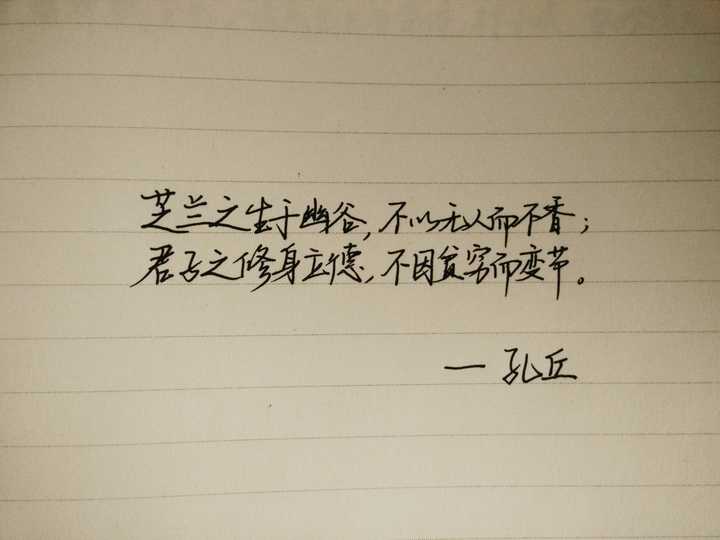 芝兰之生于幽谷,不以无人而不香;
君子之修身立德,不因贫穷而变节。
— 孔丘